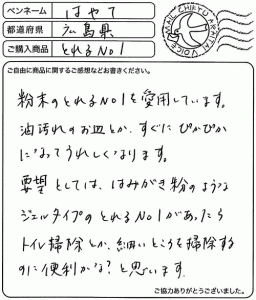 ペンネーム はやて
都道府県 広島県
ご購入商品 とれるNo1
ご自由に商品に関するご感想などお書きください。
粉末のとれるNo1を愛用しています。
油汚れのお皿とか、すぐにぴかぴか
になってうれしくなります。
要望としては、はみがき粉のような
ジェルタイプのとれるNo1があったら
トイレ掃除とか、細いところを掃除する
のに便利かな?と思います。
ご協力ありがとうございました。